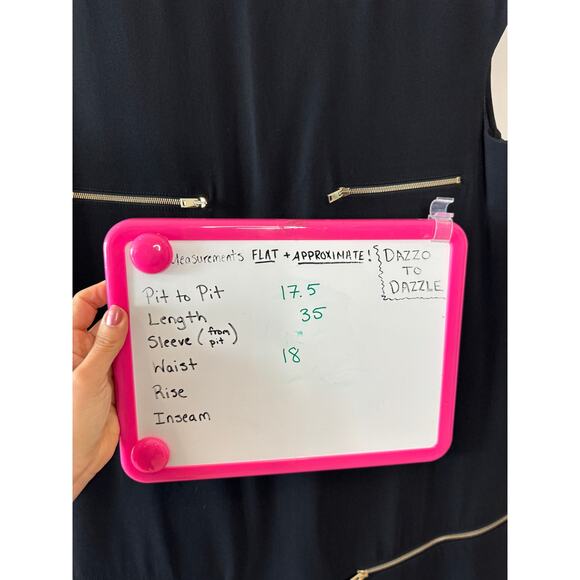 Measurements FLAT + APPROXIMATE!
DAZZO
TO
DAZZLE
Pit to Pit 17.5
Length 35
Sleeve (from pit)
Waist 18
Rise
Inseam